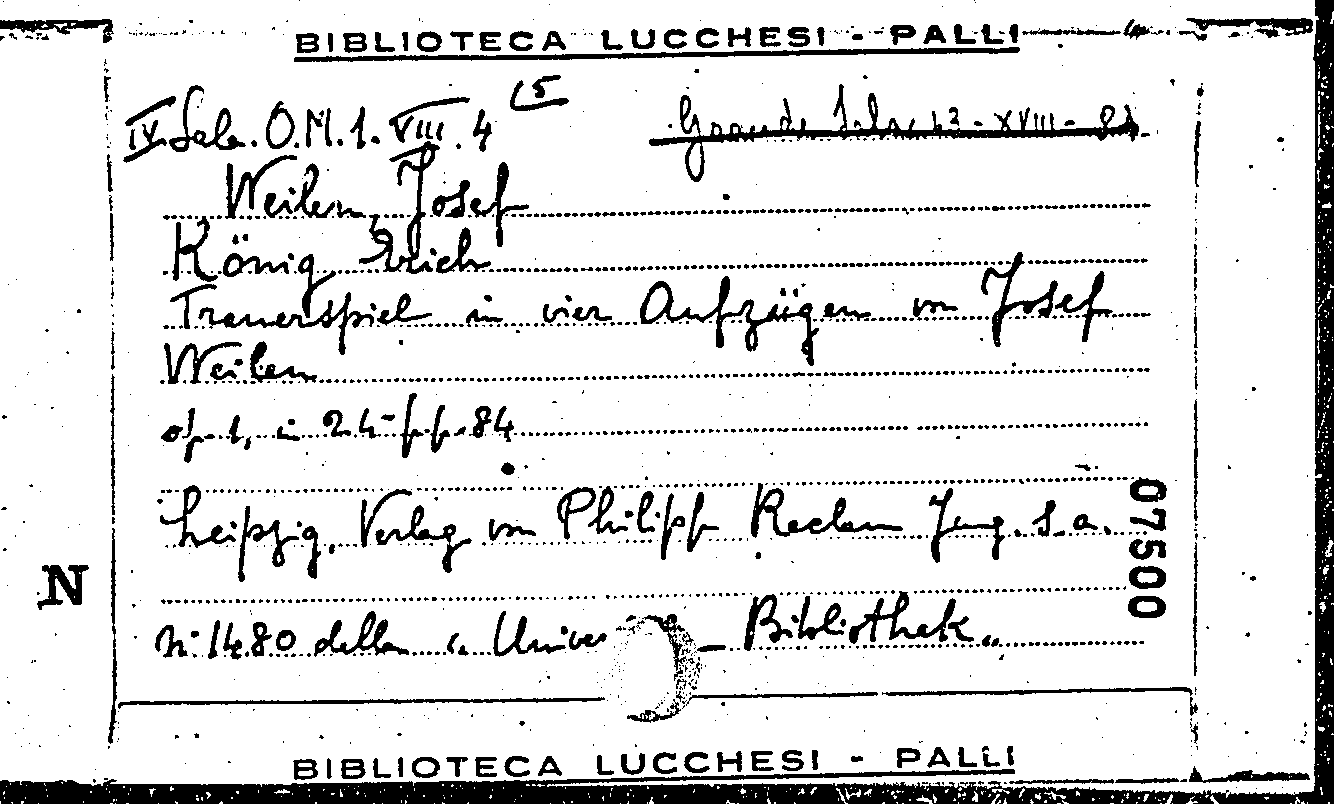 BIBLIOTECA LUCCHESI - PALLI
IV Sala. O.M.1. VIII. 4 (5
Grande Sala 43 - XVIII - 81
Weilen, Josef
König Erich
Trauerspiel in vier Aufzügen von Josef
Weilen
op. 1, in 24- pp. 84
Leipzig, Verlag von Philipp Reclam Jung. s.a.
N
07500
n: 1480 della " Univer - Bibliothek "
BIBLIOTECA LUCCHESI - PALLI